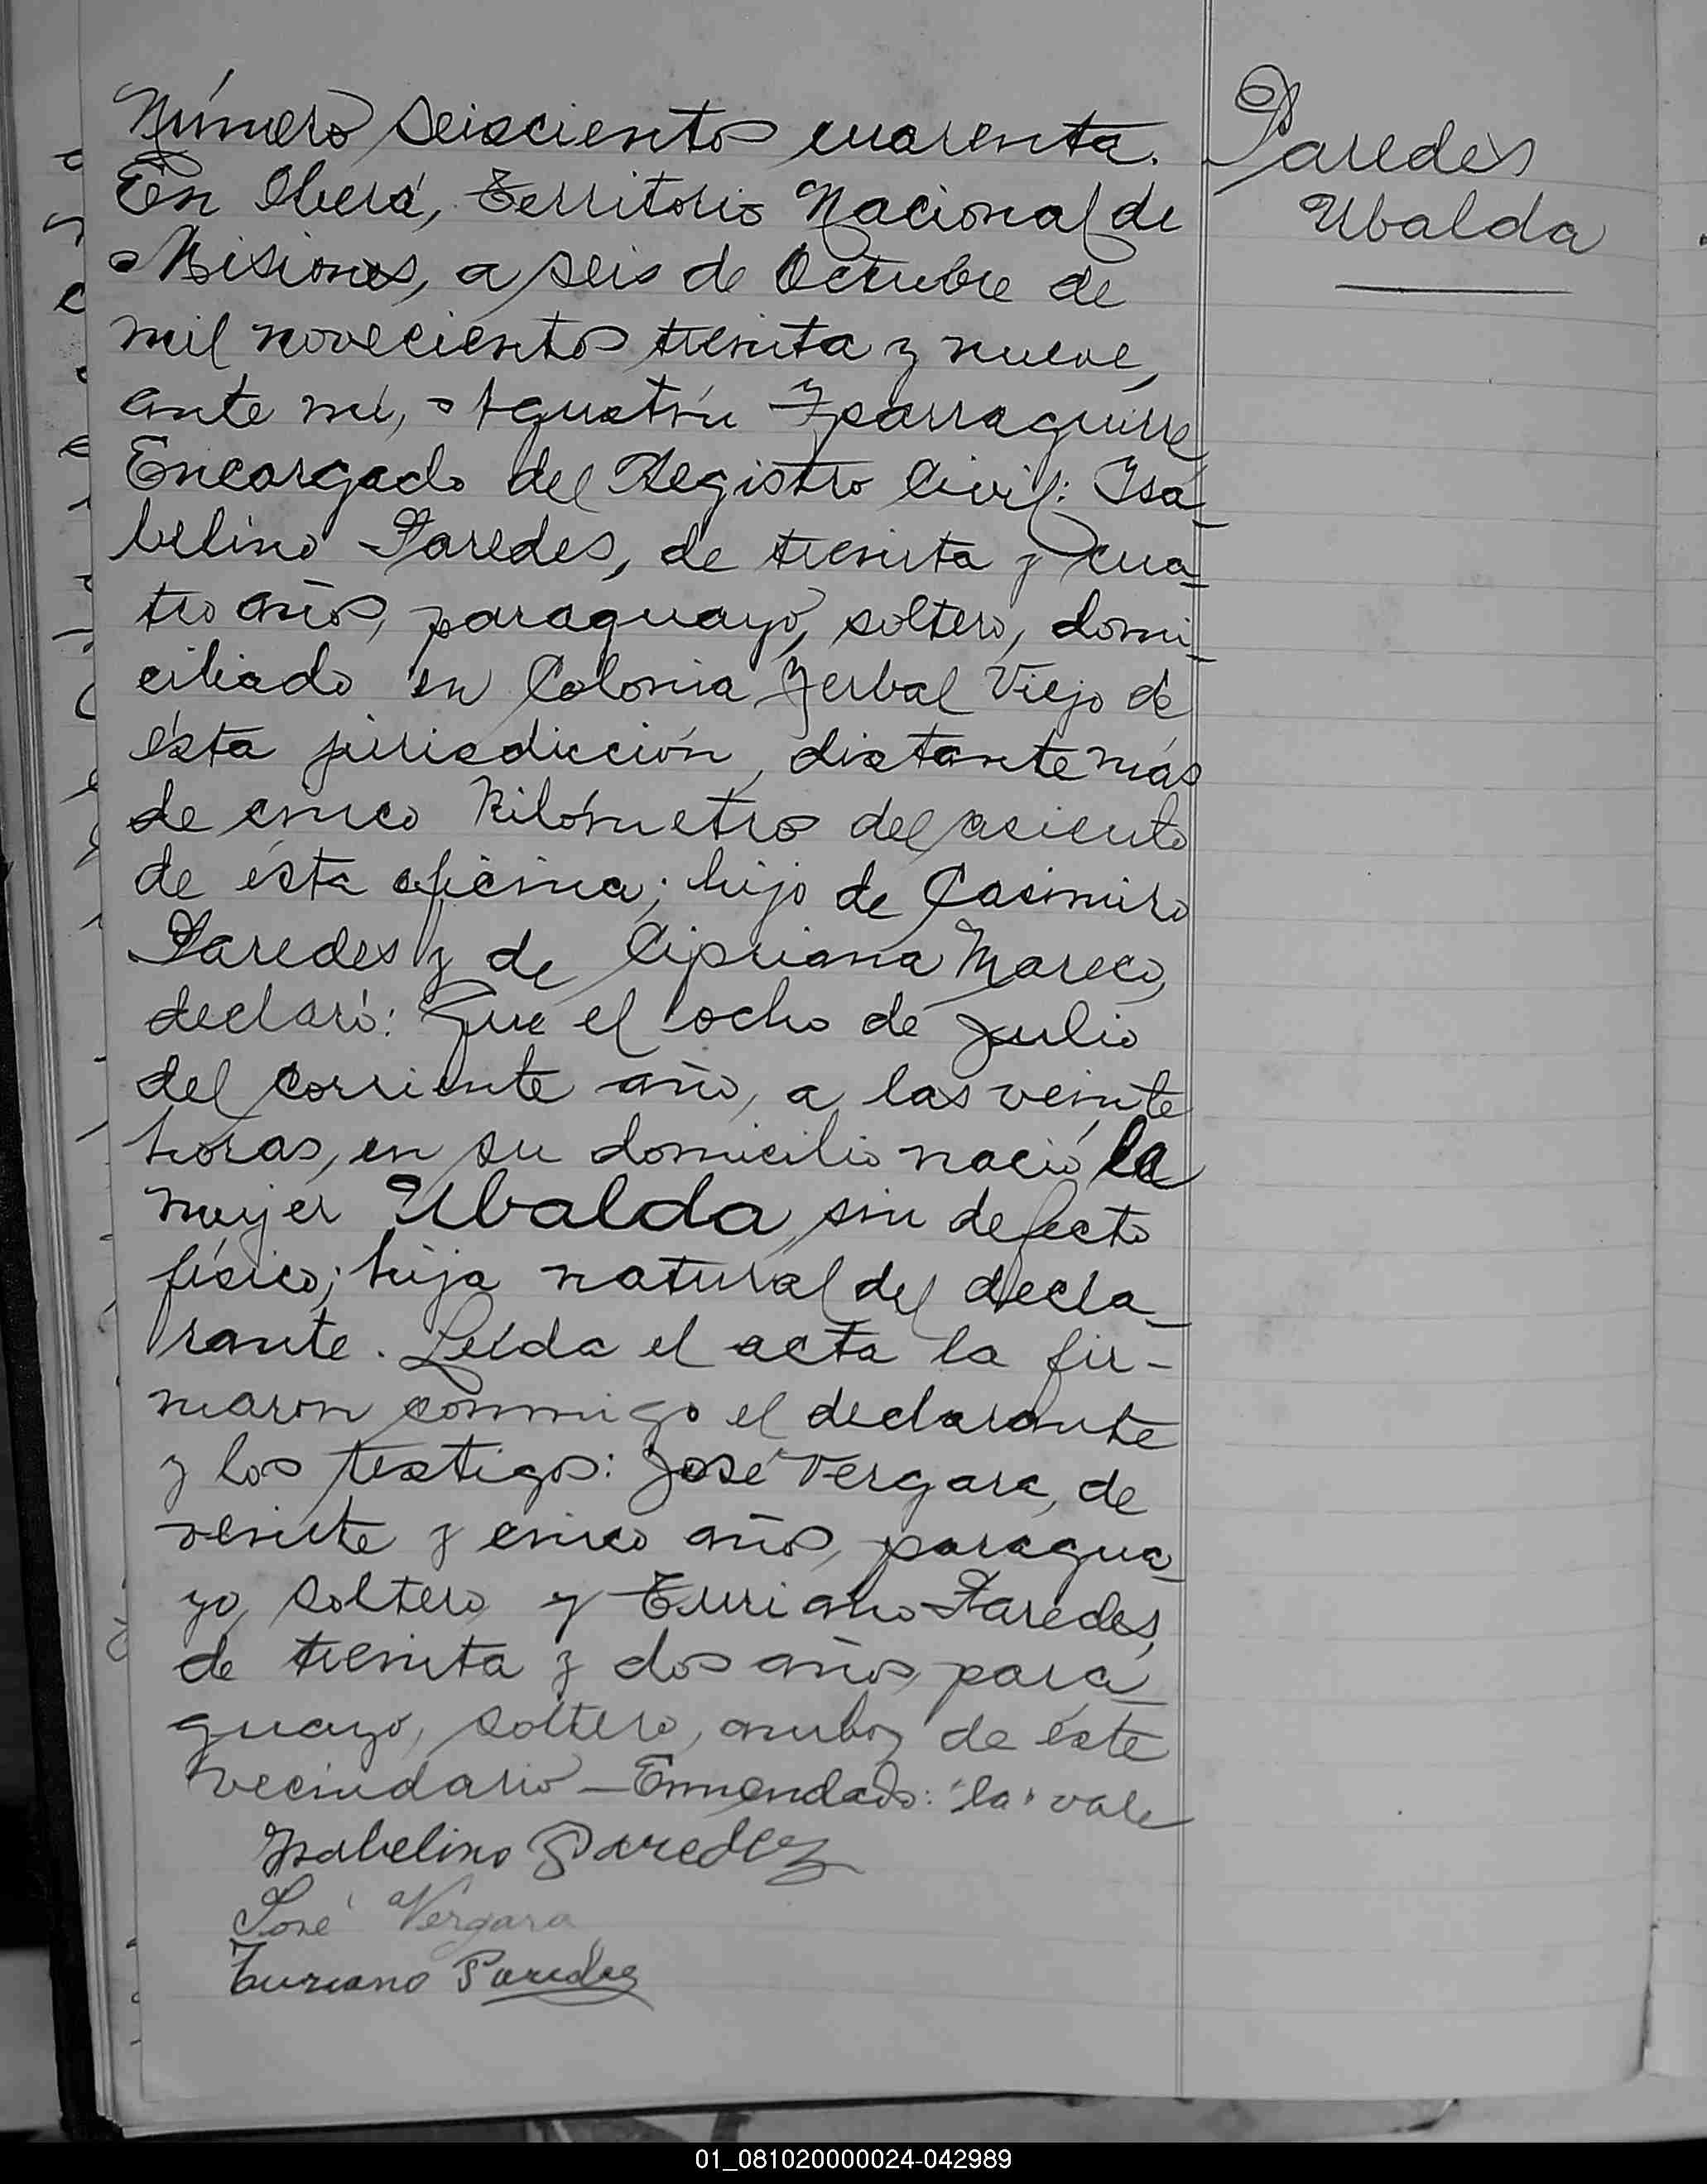 Número seiscientos cuarenta.
En Oberá, Territorio Nacional de
Misiones, a seis de Octubre de
mil novecientos treinta y nueve,
ante mí, Agustín Yparraguirre
Encargado del Registro Civil: Isa-
belino Paredes, de treinta y cua-
tro años, paraguayo, soltero, domi-
ciliado en Colonia Yerbal Viejo de
ésta jurisdicción, distante más
de cinco Kilómetros del asiento
de ésta oficina; hijo de Casimiro
Paredes y de Cipriana Mareco,
declaró: Que el ocho de Julio
del corriente año, a las veinte
horas, en su domicilio nació la
mujer Ubalda, sin defecto
físico; hija natural del decla-
rante. Leída el acta la fir-
maron conmigo el declarante
y los testigos: José Vergara, de
veinte y cinco años, paragua-
yo, soltero y Turiano Paredes,
de treinta y dos años, para-
guayo, soltero, ambos de éste
vecindario - Enmendado: "la" vale
Isabelino Paredez
José Vergara
Turiano Paredes
Paredes
Ubalda
01_081020000024-042989